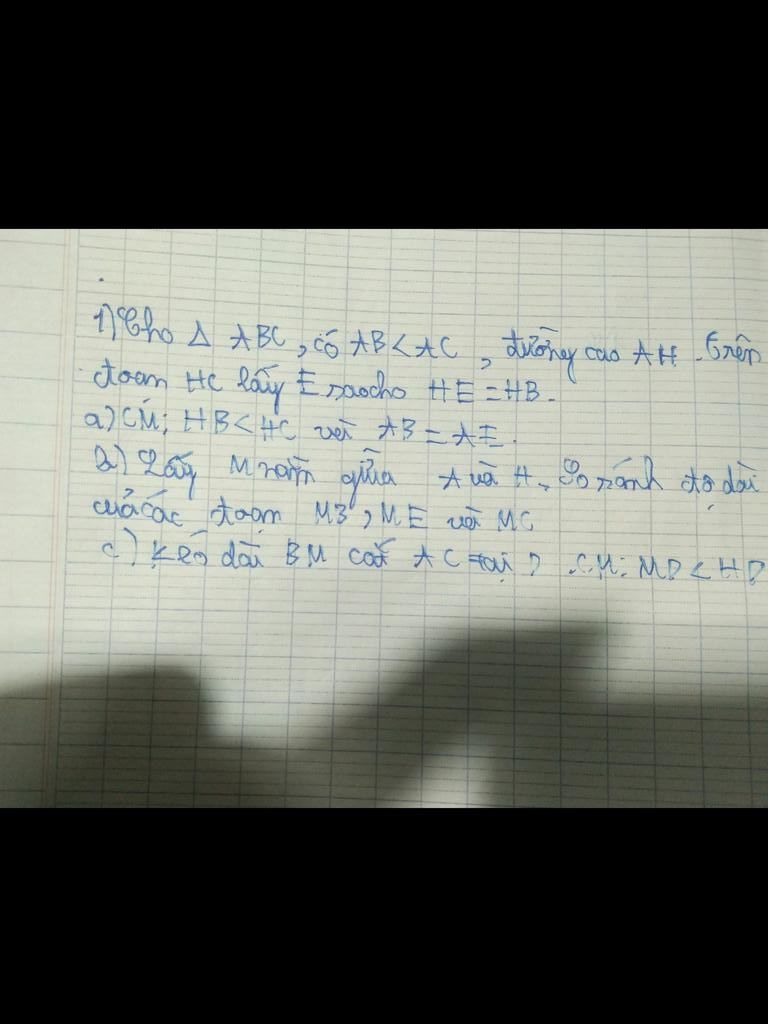 1) Cho Δ ABC, có AB < AC, đường cao AH. Trên
đoạn HC lấy E sao cho HE = HB.
a) CM: HB < HC và AB = AE.
b) Lấy M nằm giữa A và H. So sánh độ dài
của các đoạn MB, ME và MC
c) Kéo dài BM cắt AC tại D. CM: MD < HD